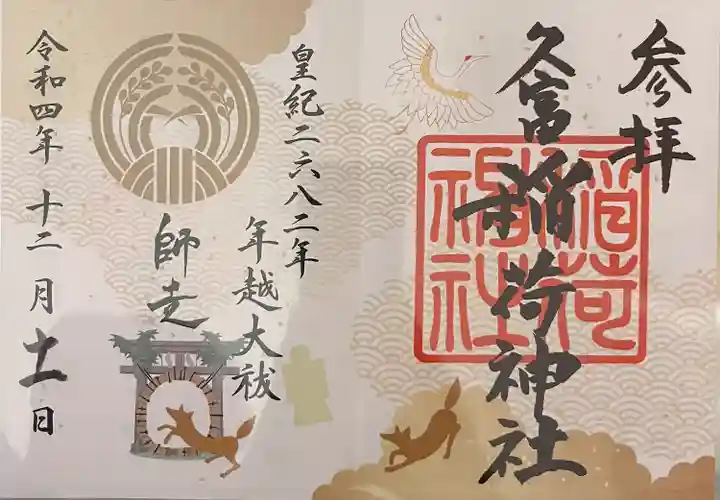 参拝
久富稲荷神社
稲荷
神社
皇紀二六八二年
年越大祓
師走
令和四年十二月十一日